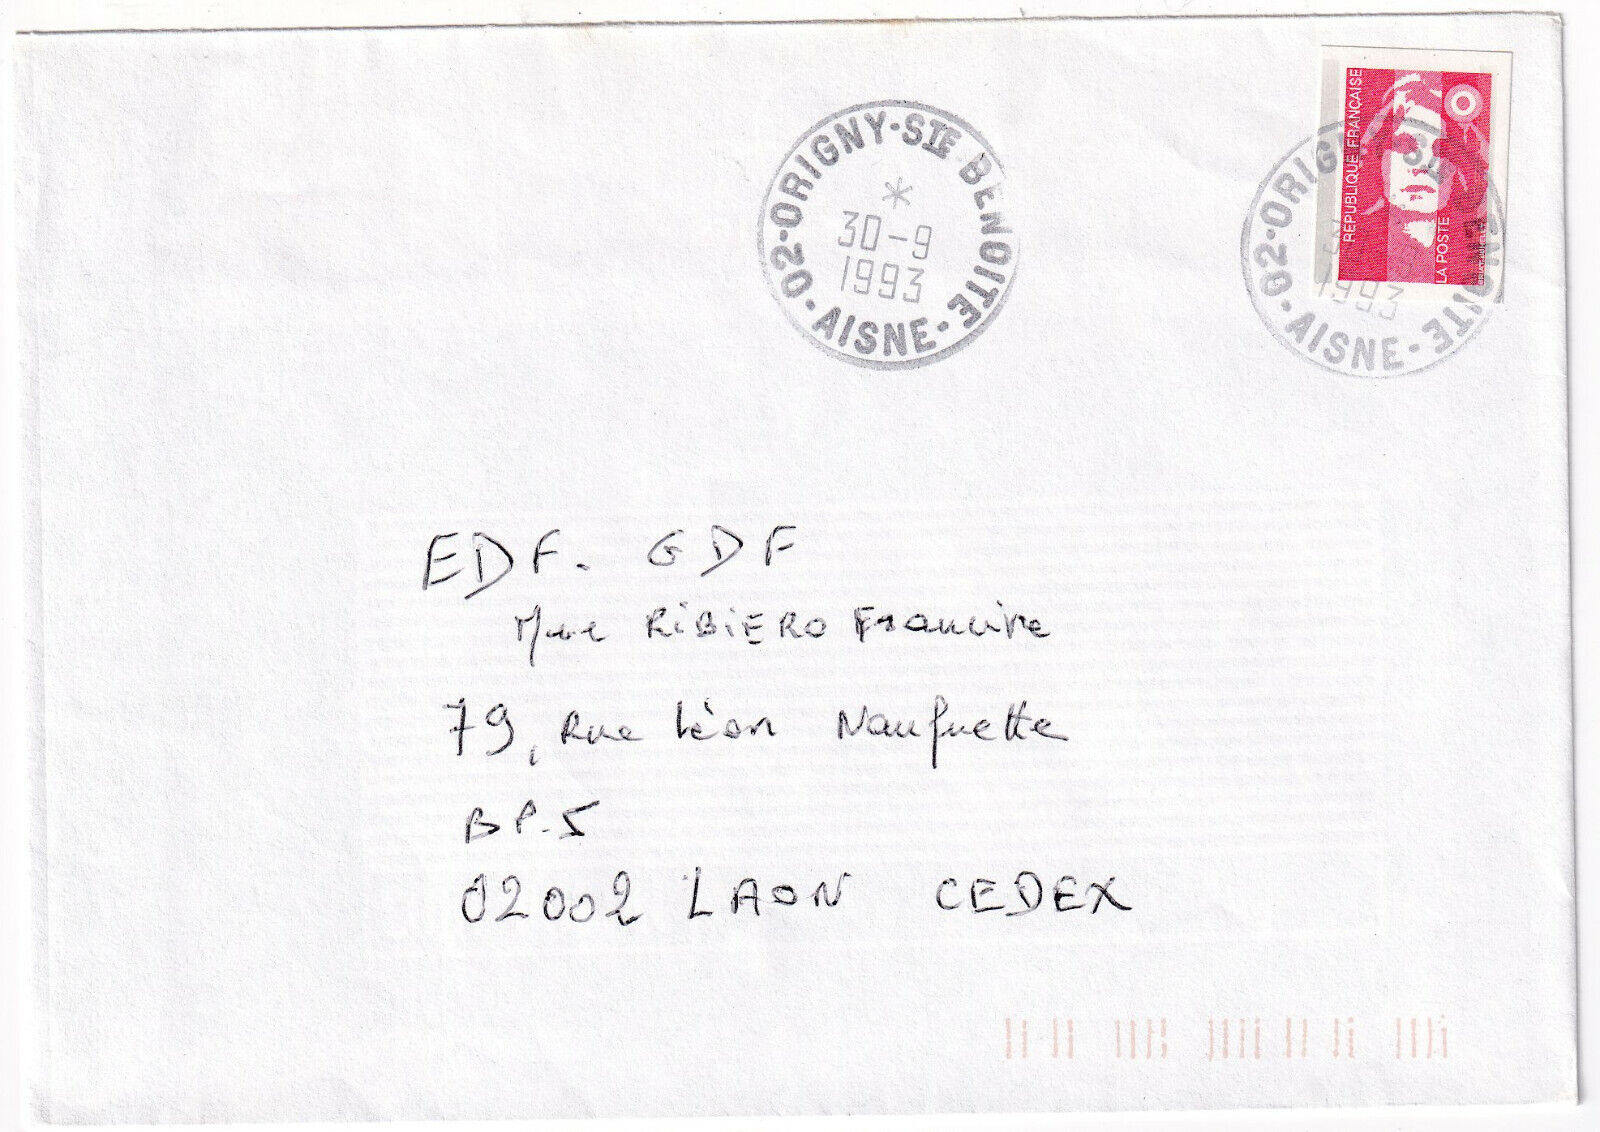 02·ORIGNY·STE BENOITE·AISNE·
*
30-9
1993
RÉPUBLIQUE FRANÇAISE
LA POSTE
02·ORIGNY STE BENOITE·AISNE·
1993
EDF. GDF
Mme RIBIERO Francine
79, Rue Léon Naufuette
BP.5
02002 LAON CEDEX